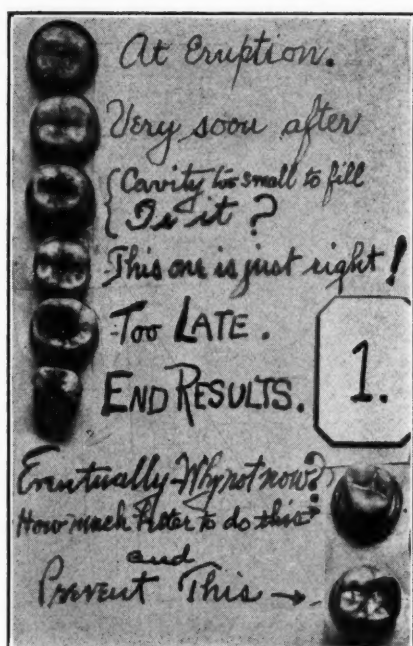 At Eruption.
Very soon after
Cavity too small to fill
Is it?
This one is just right!
Too LATE.
END RESULTS.
1.
Eventually-Why not now?
How much Better to do this
and
Prevent This →